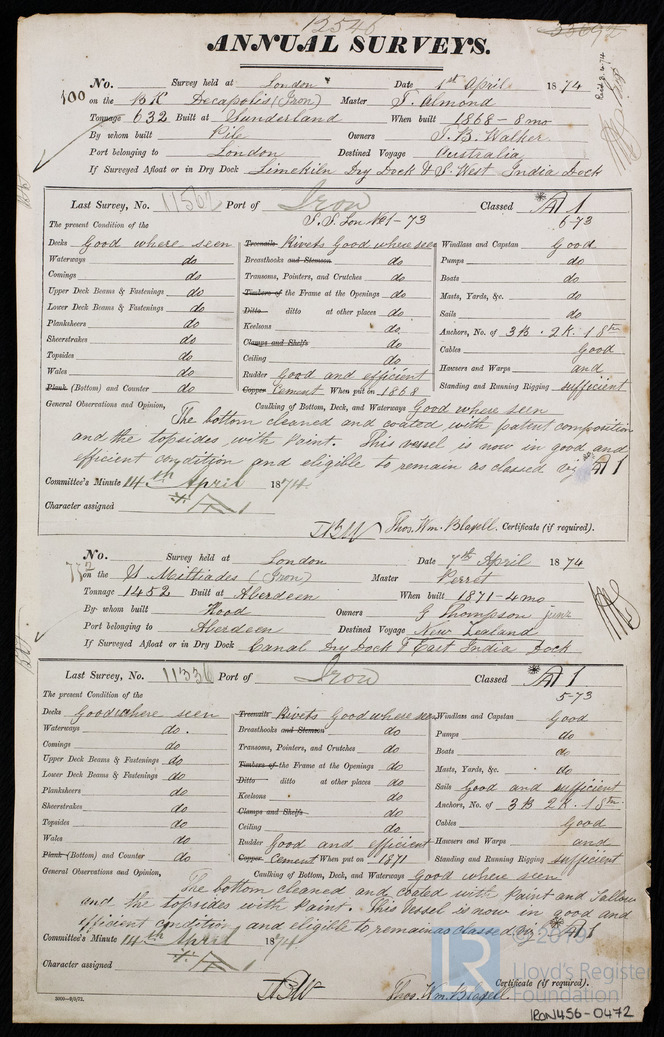 12546
ANNUAL SURVEYS.
No. Survey held at London Date 1st April 1874
100 on the BK Decapolis (Iron) Master T. Almond
Tonnage 632 Built at Sunderland When built 1868 - 8 mo
By whom built Pile Owners T. B. Walker
Port belonging to London Destined Voyage Australia
If Surveyed Afloat or in Dry Dock Limekiln Dry Dock & S. West India Dock
Last Survey, No. 11562 Port of Iron Classed *A1
S.S. Lon No1-73 6-73
The present Condition of the
Decks Good where seen Treenails Rivets Good where seen Windlass and Capstan Good
Waterways do Breasthooks and Stemson do Pumps do
Comings do Transoms, Pointers, and Crutches do Boats do
Upper Deck Beams & Fastenings do Timbers of the Frame at the Openings do Masts, Yards, &c. do
Lower Deck Beams & Fastenings do Ditto ditto at other places do Sails do
Planksheers do Keelsons do Anchors, No. of 3B. 2K. 1Stm
Sheerstrakes do Clamps and Shelfs do Cables Good
Topsides do Ceiling do Hawsers and Warps and
Wales do Rudder Good and efficient Standing and Running Rigging sufficient
Plank (Bottom) and Counter do Copper Cement When put on 1868
General Observations and Opinion, Caulking of Bottom, Deck, and Waterways Good where seen
The bottom cleaned and coated with patent composition
and the topsides with Paint. This vessel is now in good and
efficient condition and eligible to remain as classed viz *A1
Committee's Minute 14th April 1874
Character assigned *A1
Thos. Wm. Blagell. Certificate (if required).
No. Survey held at London Date 7th April 1874
on the S Miltiades (Iron) Master Perret
Tonnage 1452 Built at Aberdeen When built 1871 - 4 mo
By whom built Hood Owners G Thompson junr
Port belonging to Aberdeen Destined Voyage New Zealand
If Surveyed Afloat or in Dry Dock Canal Dry Dock & East India Dock
Last Survey, No. 11336 Port of Iron Classed *A1
5-73
The present Condition of the
Decks Good where seen Treenails Rivets Good where seen Windlass and Capstan Good
Waterways do. Breasthooks and Stemson do Pumps do
Comings do Transoms, Pointers, and Crutches do Boats do
Upper Deck Beams & Fastenings do Timbers of the Frame at the Openings do Masts, Yards, &c. do
Lower Deck Beams & Fastenings do Ditto ditto at other places do Sails Good and sufficient
Planksheers do Keelsons do Anchors, No. of 3B 2K. 1Stm
Sheerstrakes do Clamps and Shelfs do Cables Good
Topsides do Ceiling do Hawsers and Warps and
Wales do Rudder Good and efficient Standing and Running Rigging sufficient
Plank (Bottom) and Counter do Copper Cement When put on 1871
General Observations and Opinion, Caulking of Bottom, Deck, and Waterways Good where seen
The bottom cleaned and coated with Paint and Tallow
and the topsides with Paint. This Vessel is now in good and
efficient condition and eligible to remain as classed viz *A1
Committee's Minute 14th April 1874
Character assigned *A1
Thos. Wm. Blagell. Certificate (if required).
LR © 2019
Lloyd's Register
Foundation
IRON456-0472